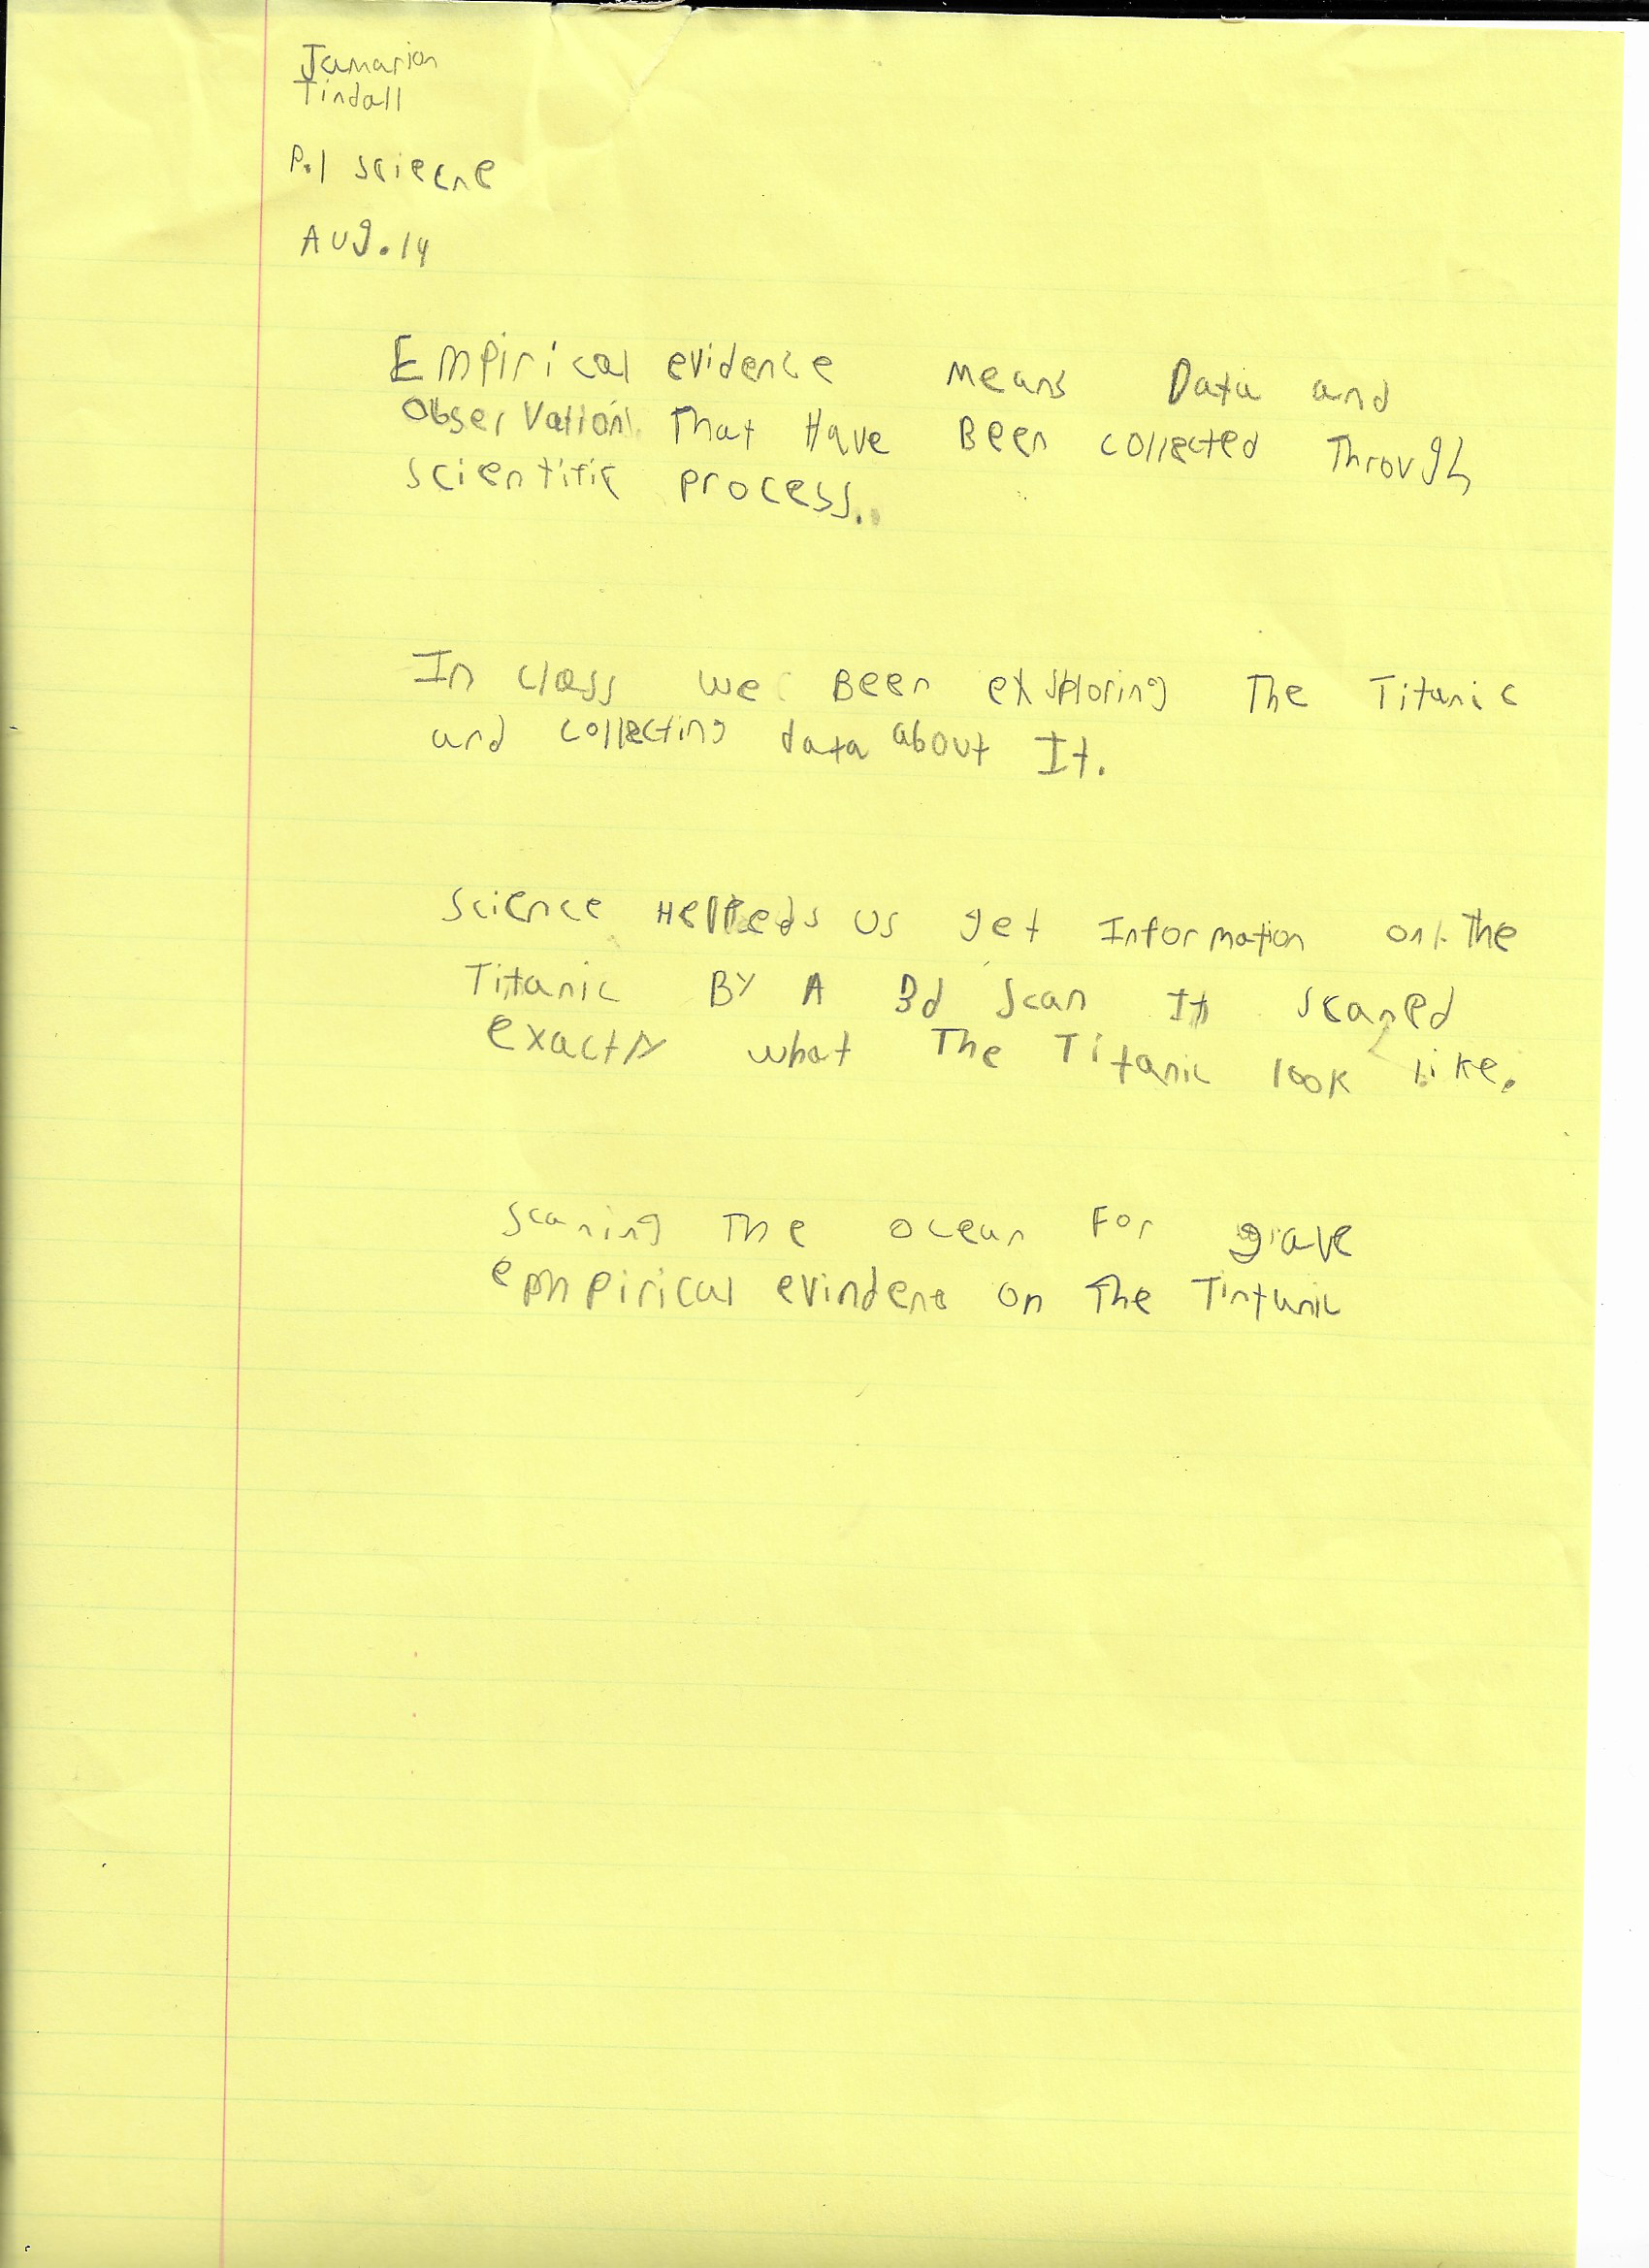 Jamarion
Tindall
P.1 sciecne
AUg.14
Empirical evidence means Data and
Observation That Have Been collected Through
scientific process.
In class we Been exploring The Titanic
and collecting data about It.
Science us get Information on the
Titanic By A 3d scan It scaned
exactly what The Titanic look like.
scaning The ocean For gave
empirical evindene on The Tintanic